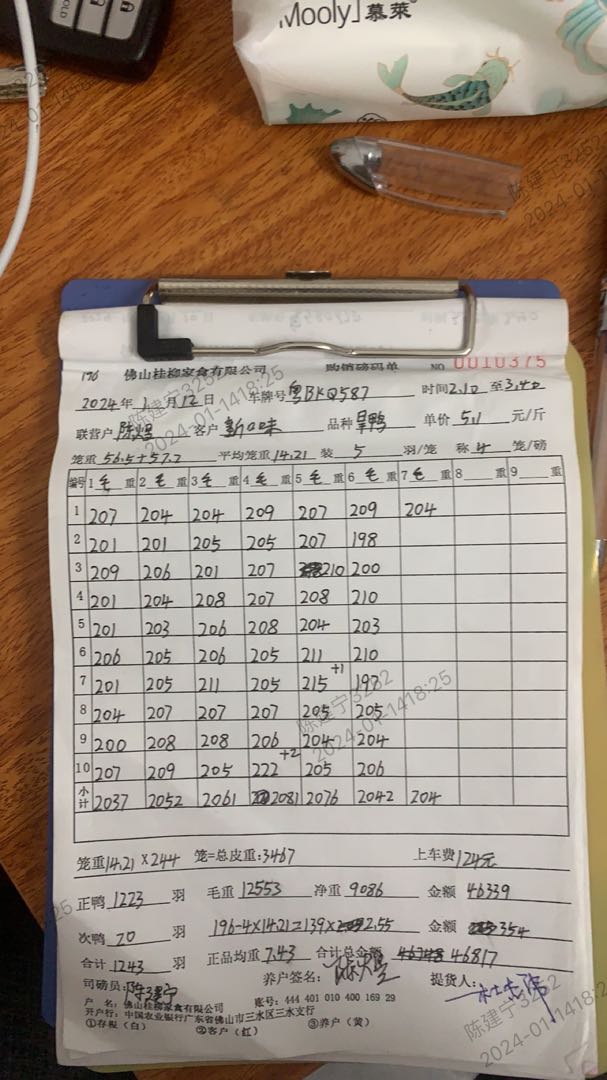 Mooly 慕莱
HOLD
196 佛山桂柳家食有限公司 购销磅码单 NO 0010375
2024年1月12日 车牌号 粤BKQ587 时间2.10至3.40
联营户 陈煌 客户 新口味 品种 旱鸭 单价 5.1 元/斤
笼重 56.5+57.2 平均笼重 14.21 装 5 羽/笼 称 4 笼/磅
编号 1毛重 2毛重 3毛重 4毛重 5毛重 6毛重 7毛重 8重 9重
1 207 204 204 209 207 209 204
2 201 201 205 205 207 198
3 209 206 201 207 210 200
4 201 204 208 207 208 210
5 201 203 206 208 204 203
6 206 205 206 205 211 210
7 201 205 211 205 215 +1 197
8 204 207 207 207 205 205
9 200 208 208 206 204 204
10 207 209 205 222 +2 205 206
小计 2037 2052 2061 2081 2076 2042 204
笼重14.21×244 笼=总皮重:3467 上车费124元
正鸭 1223 羽 毛重 12553 净重 9086 金额 46339
次鸭 20 羽 196-4×14.21=139×2.55 金额 354
合计 1243 羽 正品均重 7.43 合计总金额 46817
司磅员: 陈建宁 养户签名: 陈煌 提货人:
户 名: 佛山桂柳家食有限公司 账号: 444 401 010 400 169 29
开户行: 中国农业银行广东省佛山市三水区三水支行
①存根（白） ②客户（红） ③养户（黄）
陈建宁3252
2024-01-14 18:25